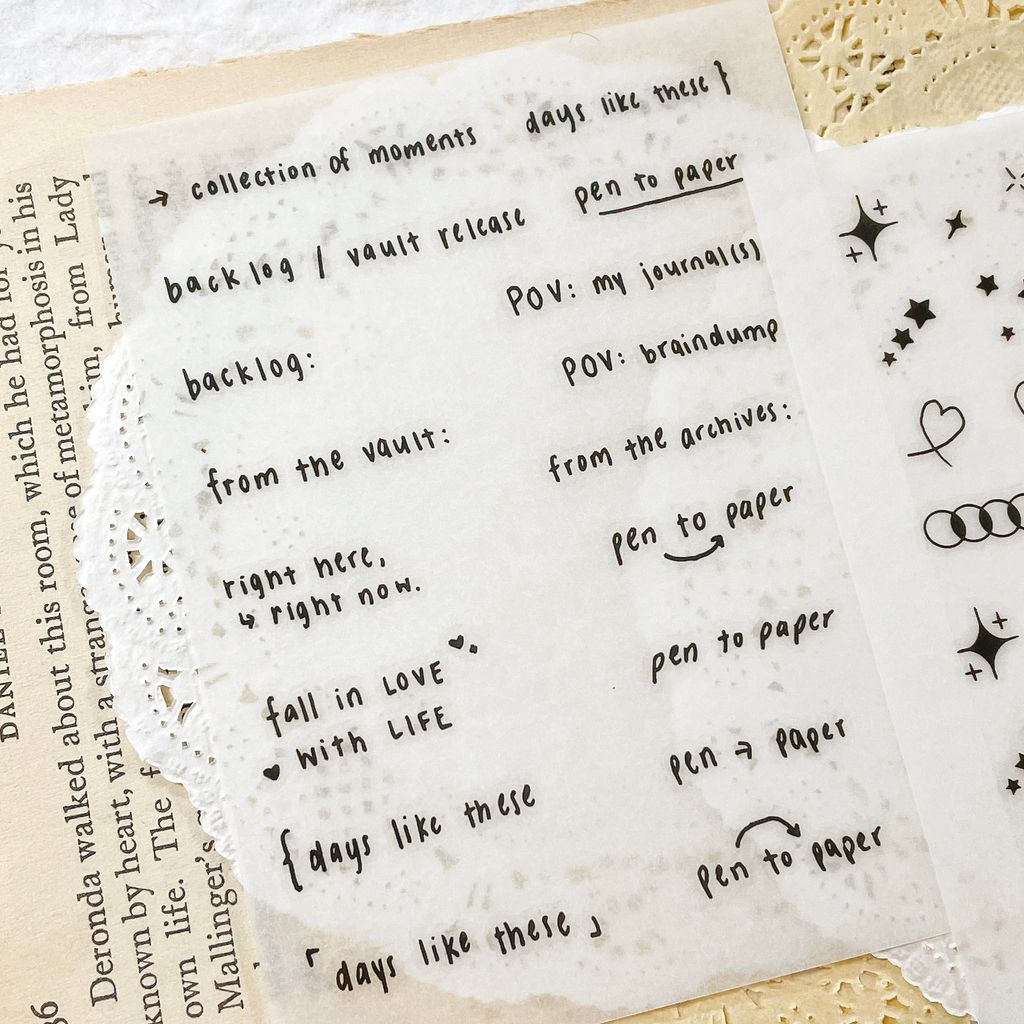 → collection of moments
days like these }
backlog / vault release
pen to paper
POV: my journal(s)
backlog:
POV: braindump
from the vault:
from the archives:
right here,
↳ right now.
pen to paper
fall in LOVE
♥ with LIFE
pen to paper
{ days like these
pen → paper
「 days like these 」
pen to paper
DANIEL
Deronda walked about this room, which he had for
known by heart, with a strange of metamorphosis in his
own life. The him, from Lady
Mallinger's human